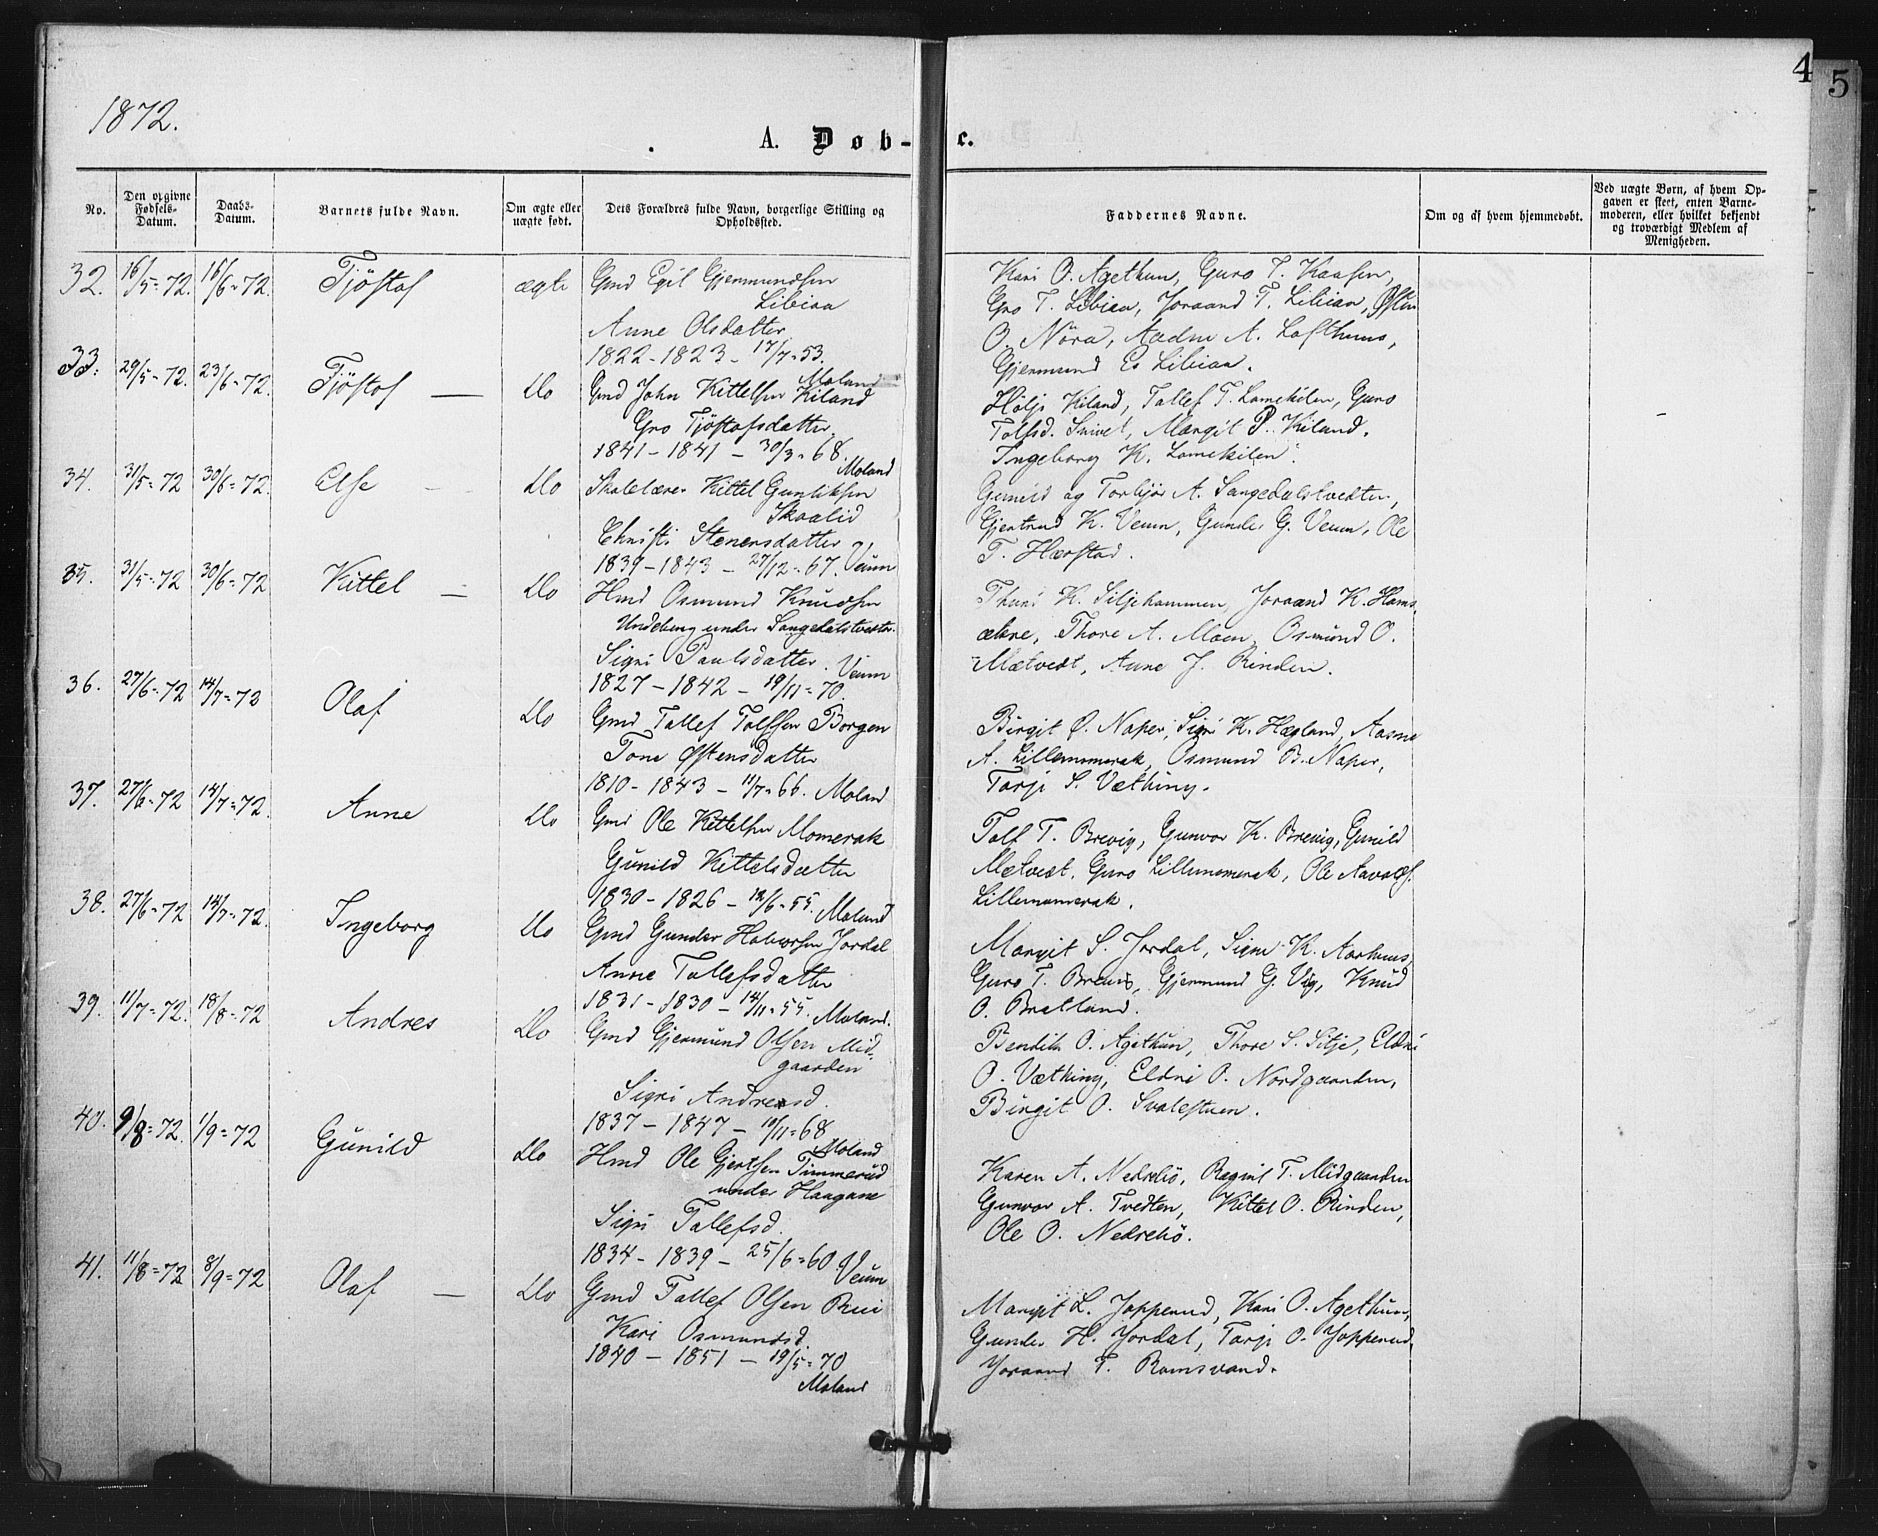 1872.
4
5
A. Døb-
e.
No.
Den opgivne Fødsels-Datum.
Daabs-Datum.
Barnets fulde Navn.
Om ægte eller uægte født.
Dets Forældres fulde Navn, borgerlige Stilling og Opholdssted.
Faddernes Navne.
Om og af hvem hjemmedøbt.
Ved uægte Børn, af hvem Opgaven er skeet, enten Barnemoderen, eller hvilket bekjendt og troværdigt Medlem af Menigheden.
32. 16/5=72. 16/6=72. Tjøstof ægte Gmd Egil Gjermundsen
Libiaa
Anne Olsdatter
1822-1823-17/7=53.
Moland
Kari O. Agethun, Guro T. Kaasen,
Gro T. Libiaa, Joraand T. Libiaa, Østen
O. Nöra, Aadne A. Lofthuus,
Gjermund Es Libiaa.
33. 29/5=72. 23/6=72. Tjøstof — Do Gmd John Kittelsen Kiland
Gro Tjøstofsdatter
1841-1841-30/3=68.
Moland
Hölje Kiland, Tallef T. Lomekilen, Guro
Tolfsd. Snivet, Margit P. Kiland.
Ingeborg K. Lomekilen.
34. 31/5=72 30/6=72. Else — Do Skolelærer Kittel Gunliksen
Skaalid
Christi Stenersdatter
1839-1843-27/12=67. Veum
Gunild og Torbjør A. Sangedalstvedten,
Gjertrud K. Veum, Gunder G. Veum, Ole
T. Harstad.
35. 31/5=72 30/6=72 Kittel — Do Hmd Osmund Knudsen
Undeberg under Sangedalstvedten.
Sigri Paulsdatter. Veum
1827-1842-19/11=70.
Thuri K. Siljehammen, Joraand K. Hams
ækre, Thore A. Moen, Osmund O.
Mætvedt, Anne J. Rinden.
36. 27/6=72 14/7=72 Olaf Do Gmd Tallef Tolfsen Borgen
Tone Østensdatter
1810-1843-11/7=66. Moland
Birgit O. Naper, Sigri K. Hægland, Aasne
A. Lillemomerak, Osmund B. Naper,
Tarje S. Væthing.
37. 27/6=72 14/7=72. Anne Do Gmd Ole Kittelsen Momerak
Gunild Kittelsdatter
1830-1826-12/6=55. Moland
Tolf T. Brevig, Gunvor K. Brevig, Gunild
Mætvedt, Guro Lillemomerak, Ole
Lillemomerak.
38. 27/6=72 14/7=72. Ingeborg Do Gmd Gunder Halvorsen Jordal
Anne Tallefsdatter
1831-1830-14/11=55. Moland.
Margit S. Jordal, Signe K. Aarhuus,
Guro T. Brevig, Gjermund G. Vig, Knud
O. Bratland.
39. 11/7=72. 18/8=72 Andres Do Gmd Gjermund Olsen Mid-
gaarden
Sigri Andresd.
1837-1847-10/11=68
Moland
Bendik O. Agethun, Thore S. Sitje, Eldri
O. Væthing, Eldri O. Nordgaarden,
Birgit O. Svalestuen.
40. 9/8=72. 1/9=72 Gunild Do Hmd Ole Gjertsen Timmerud
under Haugane
Sigri Tallefsd.
1834-1839-25/6=60. Veum
Karen A. Nedrebö, Ragnil T. Midgaarden
Gunvor A. Tvedten, Kittel O. Rinden,
Ole O. Nedrebö.
41. 11/8=72 8/9=72 Olaf — Do Gmd Tallef Olsen Rui
Kari Osmundsd.
1840-1851-19/5=70
Moland
Margit L. Jopperud, Kari O. Agethun,
Gunder H. Jordal, Tarje O. Jopperud,
Joraand T. Ramsvand.